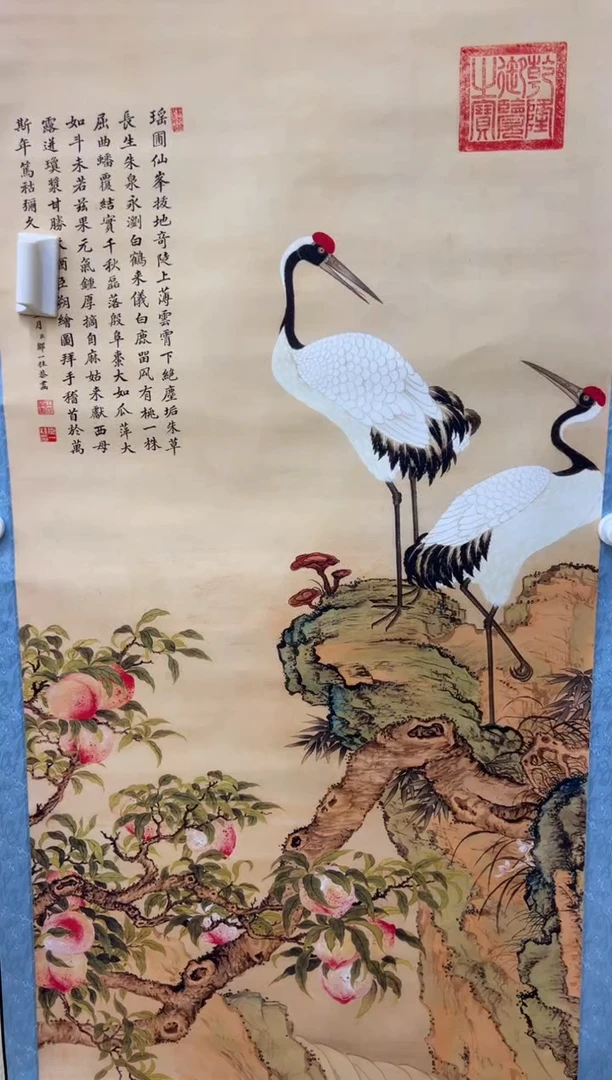 乾隆
御覽
之寶
瑤圃仙峯拔地奇陡上薄雲霄下絕塵垢朱草
長生朱泉永瀏白鶴来儀白鹿畱风有桃一株
屈曲蟠覆結實千秋磊落殷阜棗大如瓜萍大
如斗未若茲果元氣鍾厚摘自麻姑来獻西母
露迸瓊漿甘勝酋臣朔繪圖拜手稽首於萬
斯年篤祜彌久
月臣鄒一桂恭畫